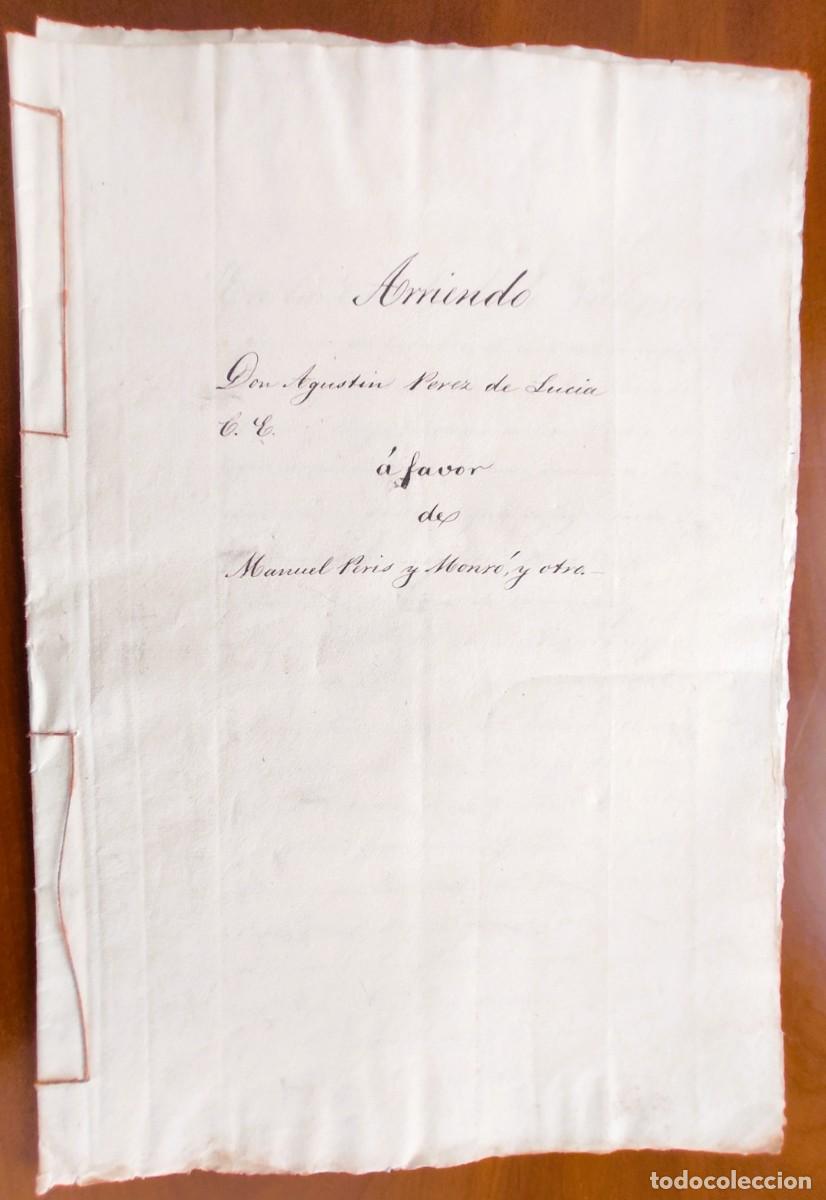 Arriendo
Don Agustin Perez de Lucia
C. E.
á favor
de
Manuel Peris y Monró, y otro.—
todocoleccion